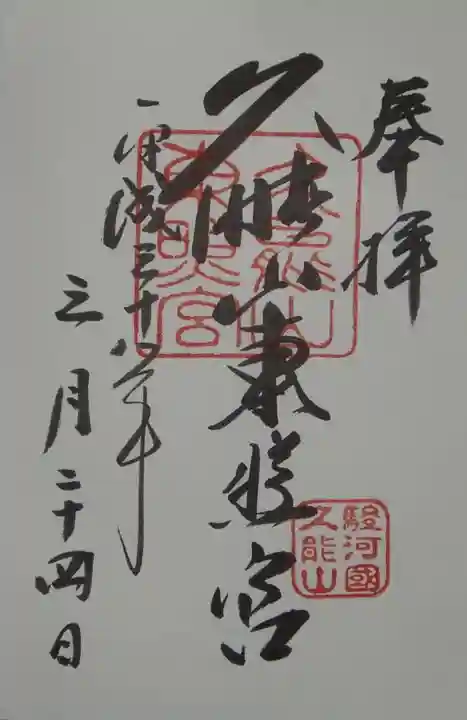 奉拝
久能山東照宮
平成三十年
三月二十四日
久能山
東照宮
駿河國
久能山